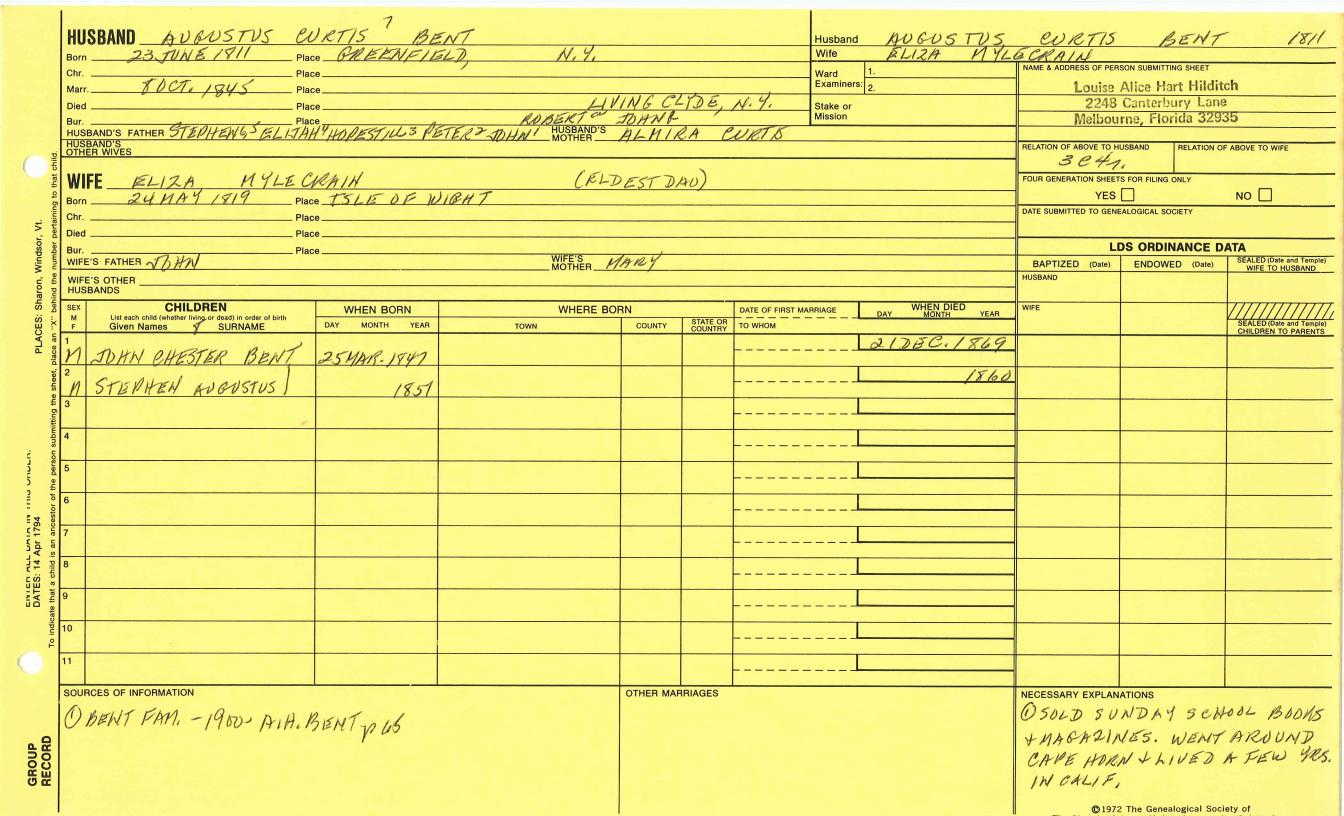 7
HUSBAND AUGUSTUS CURTIS BENT
Born 23 JUNE 1811 Place GREENFIELD, N.Y.
Chr. Place
Marr. 8 OCT. 1845 Place
Died Place LIVING CLYDE, N.Y.
Bur. Place ROBERT JOHN
HUSBAND'S FATHER STEPHEN6 ELIJAH4 HOPESTILL3 PETER2 JOHN1 HUSBAND'S MOTHER ALMIRA CURTIS
HUSBAND'S OTHER WIVES
Husband AUGUSTUS CURTIS BENT 1811
Wife ELIZA MYLECRAIN
Ward Examiners: 1.
2.
Stake or Mission
NAME & ADDRESS OF PERSON SUBMITTING SHEET
Louise Alice Hart Hilditch
2248 Canterbury Lane
Melbourne, Florida 32935
RELATION OF ABOVE TO HUSBAND RELATION OF ABOVE TO WIFE
3C4r.
FOUR GENERATION SHEETS FOR FILING ONLY
YES NO
DATE SUBMITTED TO GENEALOGICAL SOCIETY
WIFE ELIZA MYLECRAIN (ELDEST DAU)
Born 24 MAY 1819 Place ISLE OF WIGHT
Chr. Place
Died Place
Bur. Place
WIFE'S FATHER JOHN WIFE'S MOTHER MARY
WIFE'S OTHER HUSBANDS
LDS ORDINANCE DATA
BAPTIZED (Date) ENDOWED (Date) SEALED (Date and Temple) WIFE TO HUSBAND
HUSBAND
WIFE
SEALED (Date and Temple) CHILDREN TO PARENTS
SEX M F
CHILDREN
List each child (whether living or dead) in order of birth
Given Names 8 SURNAME
WHEN BORN
DAY MONTH YEAR
WHERE BORN
TOWN COUNTY STATE OR COUNTRY
DATE OF FIRST MARRIAGE
TO WHOM
WHEN DIED
DAY MONTH YEAR
1 M JOHN CHESTER BENT 25 MAR. 1847 21 DEC. 1869
2 M STEPHEN AUGUSTUS 1851 1860
3
4
5
6
7
8
9
10
11
SOURCES OF INFORMATION
① BENT FAM. - 1900 - A.H. BENT p 65
OTHER MARRIAGES
NECESSARY EXPLANATIONS
① SOLD SUNDAY SCHOOL BOOKS
+ MAGAZINES. WENT AROUND
CAPE HORN + LIVED A FEW YRS.
IN CALIF.
©1972 The Genealogical Society of
PLACES: Sharon, Windsor, Vt.
DATES: 14 Apr 1794
To indicate that a child is an ancestor of the person submitting the sheet, place an "X" behind the number pertaining to that child.
GROUP RECORD